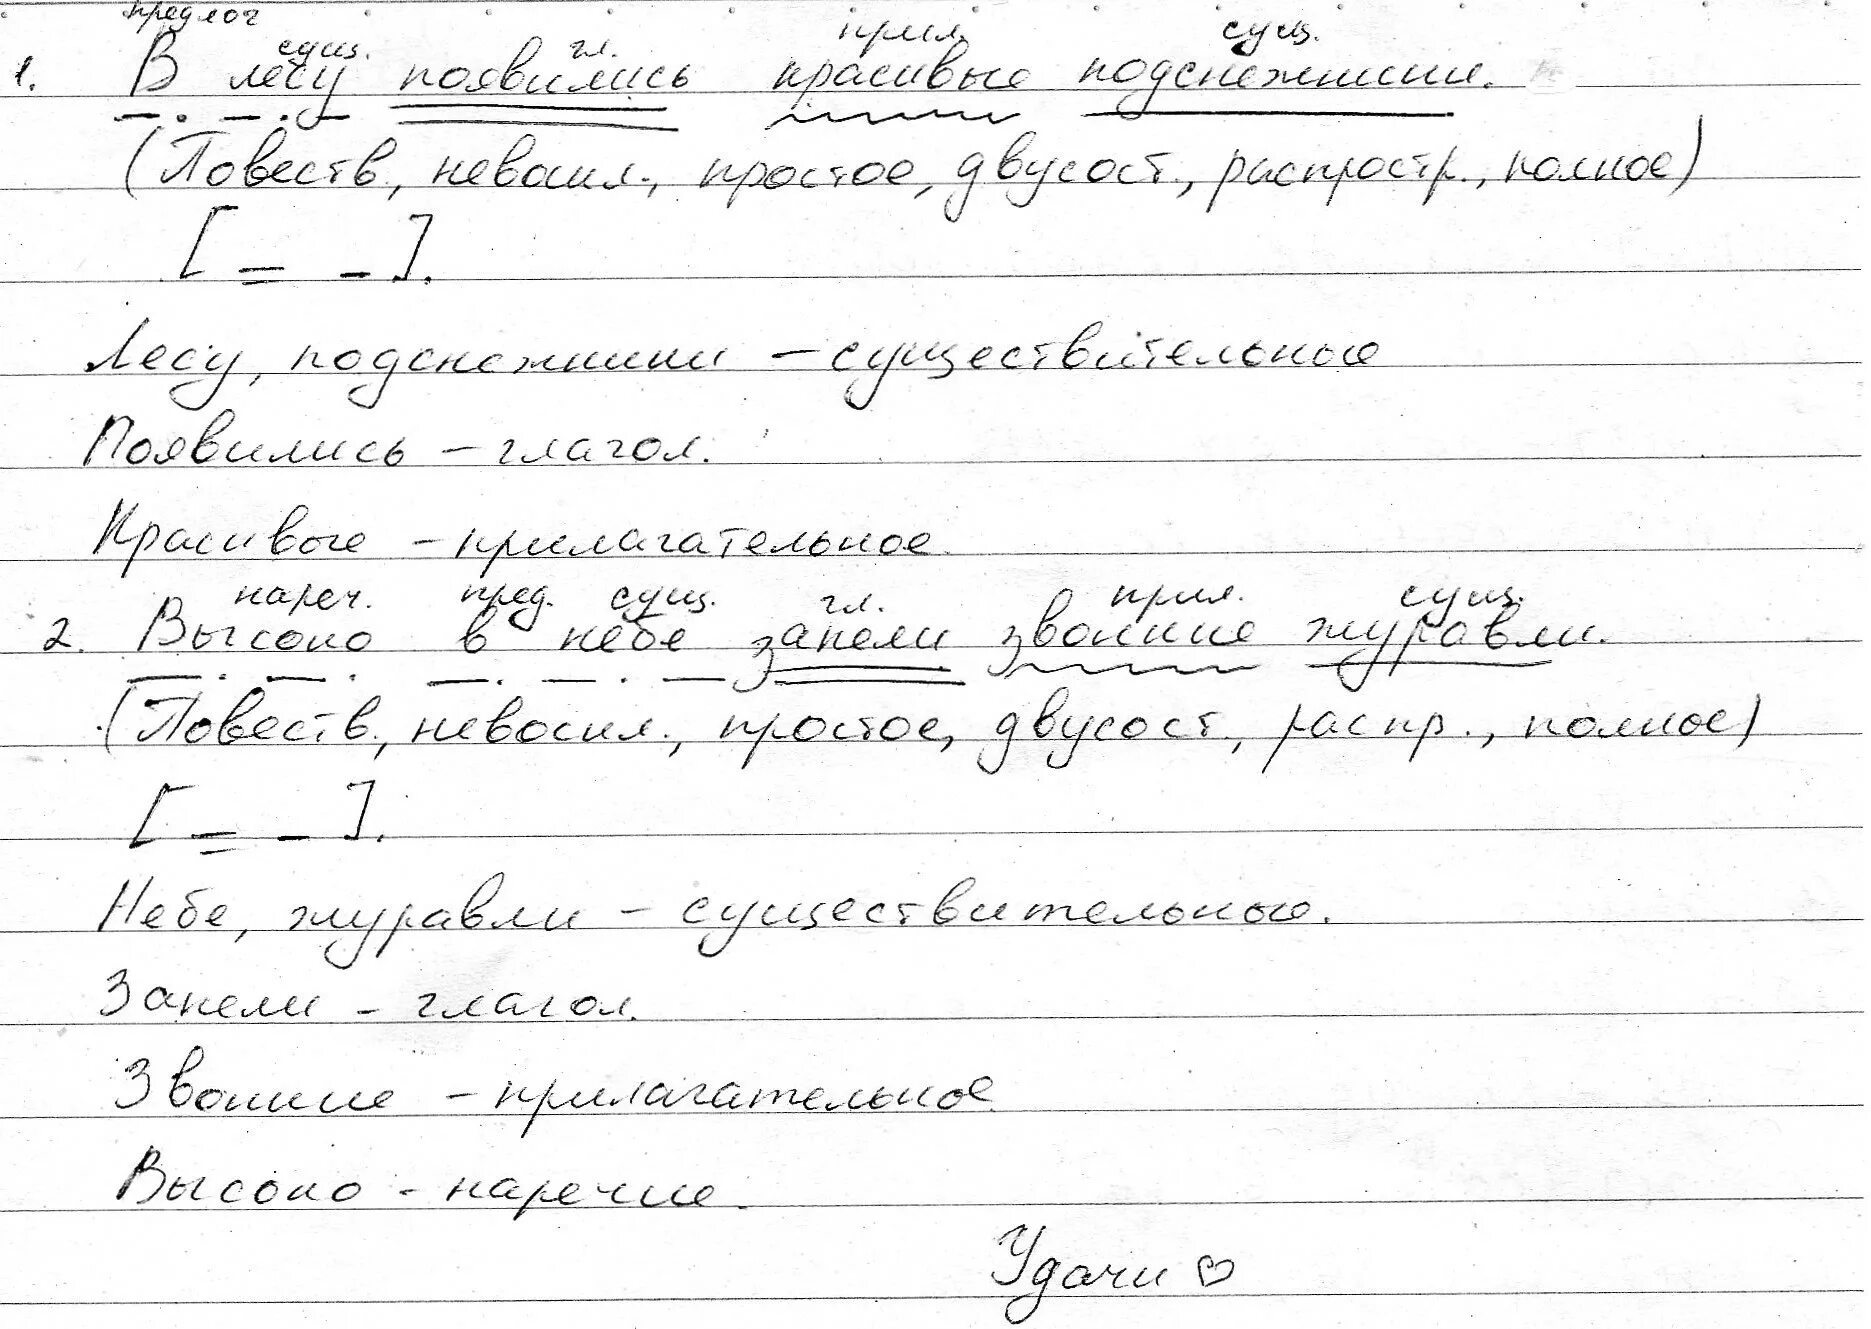 предлог сущ. гл. прил. сущ.
1. В лесу появились красивые подснежники.
(Повеств., невоскл., простое, двусост., распростр., полное)
[ = - ].
Лесу, подснежники – существительные
Появились – глагол.
Красивые – прилагательное.
нареч. пред. сущ. гл. прил. сущ.
2. Высоко в небе запели звонкие журавли.
(Повеств., невоскл., простое, двусост., распр., полное)
[ = - ].
Небе, журавли – существительные.
Запели – глагол.
Звонкие – прилагательное.
Высоко - наречие.
Удачи ♡